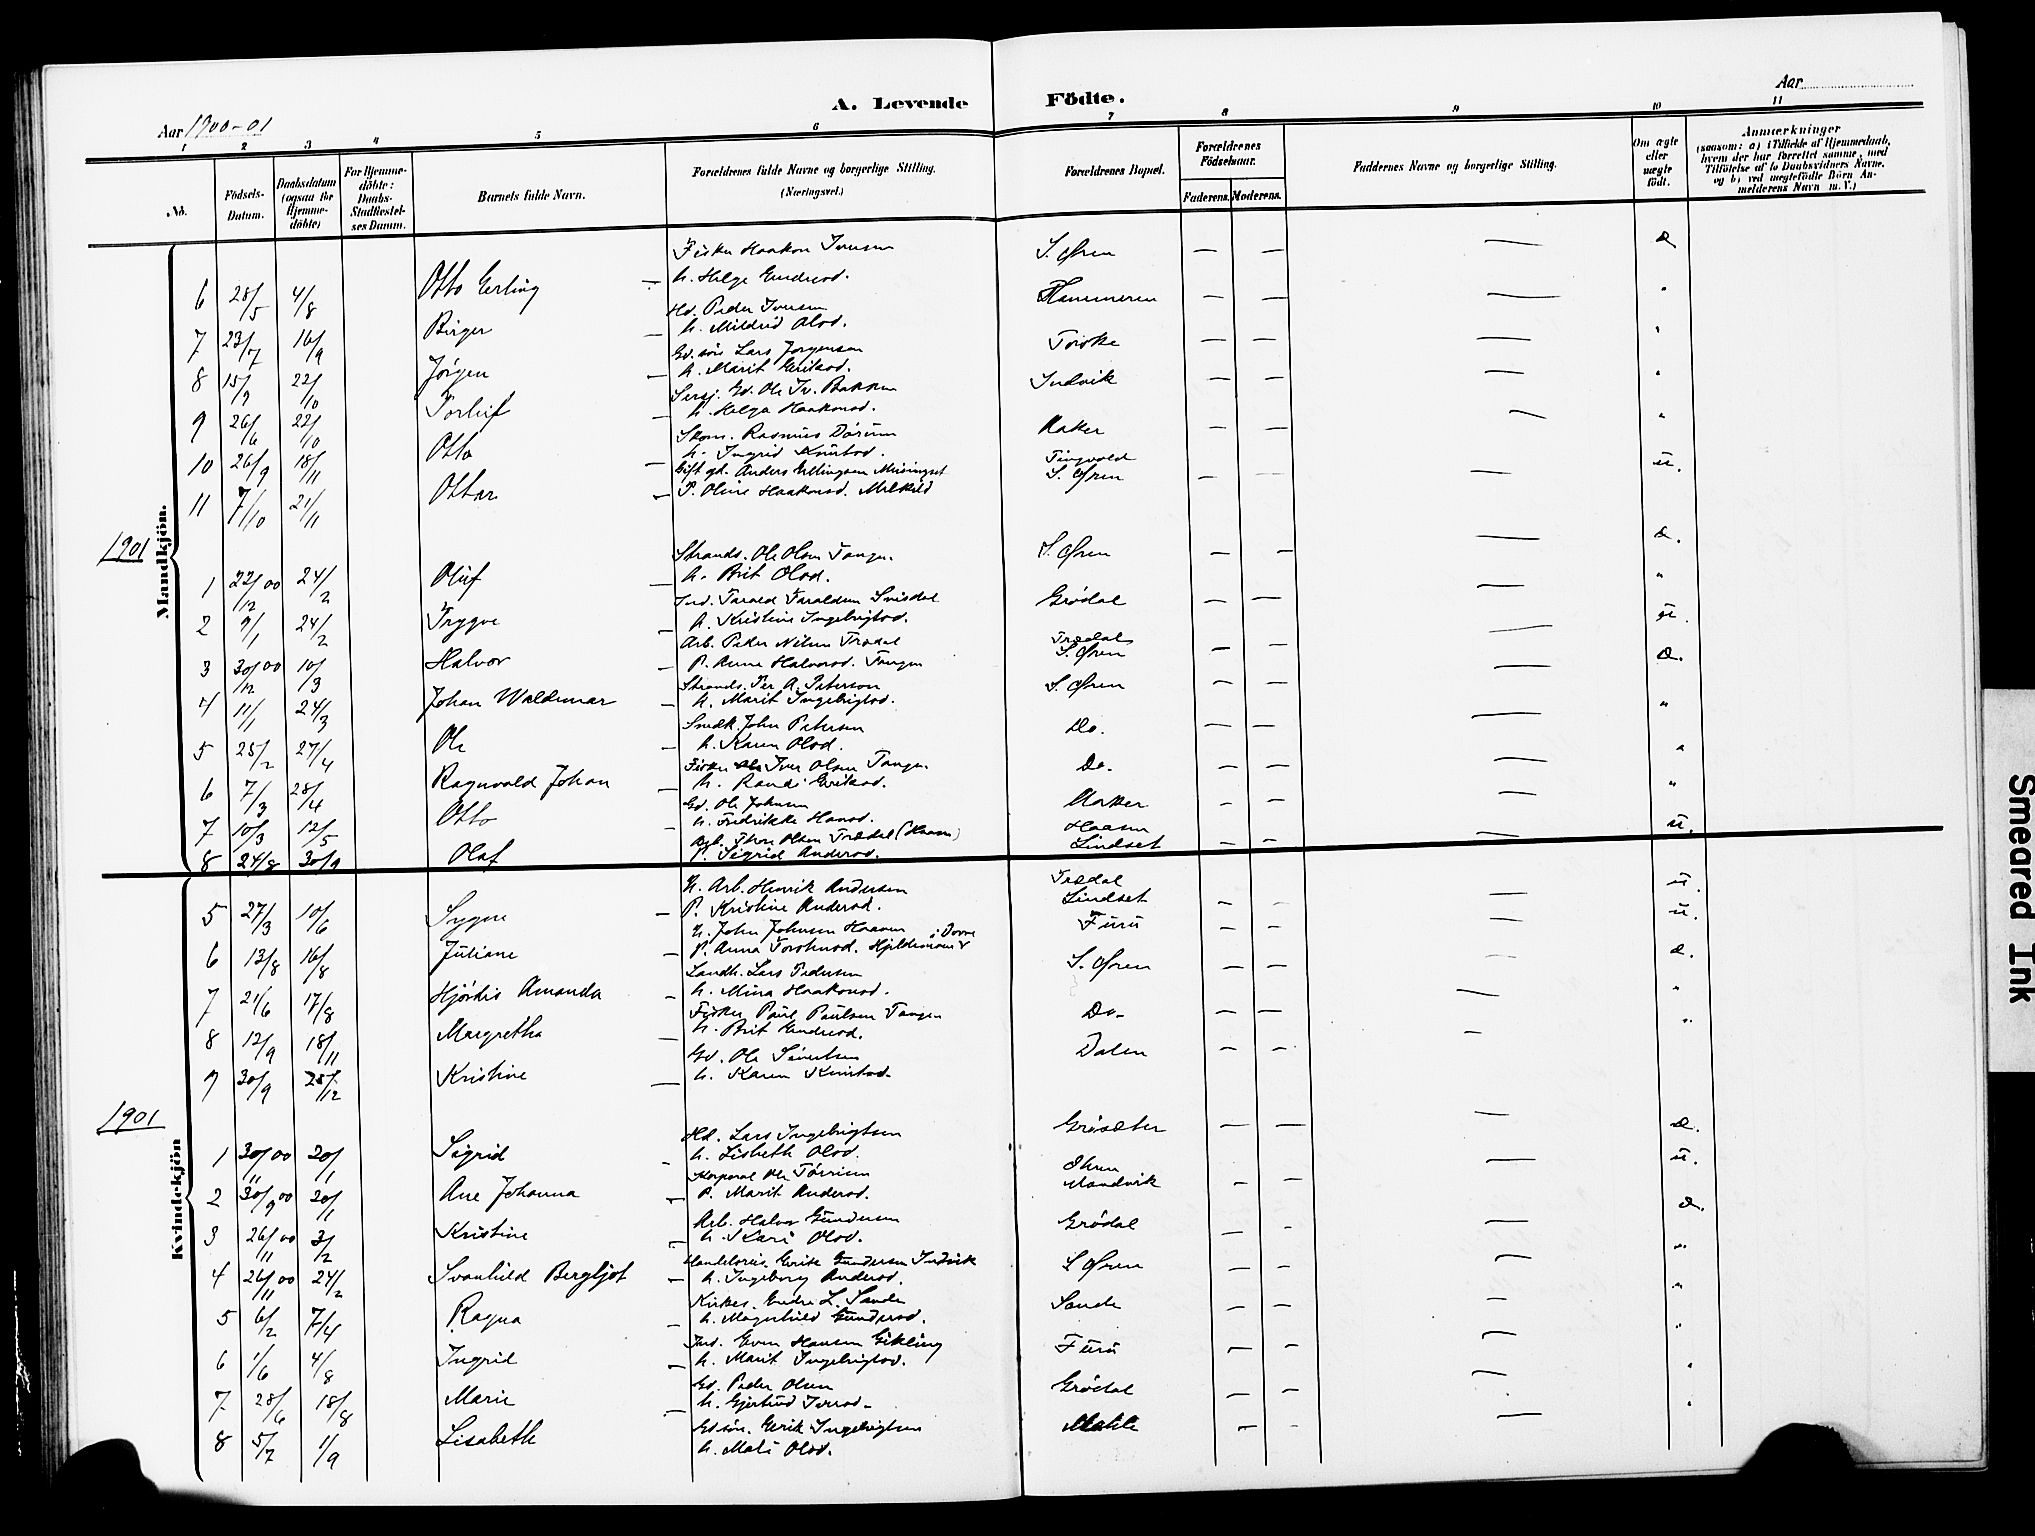 A. Levende Födte.
Aar 1900-01
Aar
1 2 3 4 5 6 7 8 9 10 11
No. Födsels-Datum. Daabsdatum (ogsaa for Hjemme-döbte) For Hjemme-döbte: Daabs-Stadfæstel-ses Datum. Barnets fulde Navn. Forældrenes fulde Navne og borgerlige Stilling. (Næringsvei.) Forældrenes Bopæl. Forældrenes Födselsaar. Faderens. Moderens. Faddernes Navne og borgerlige Stilling. Om ægte eller uægte födt. Anmærkninger (saasom: a) i Tilfælde af Hjemmedaab, hvem der har forrettet samme, med Tilföielse af to Daabsvidners Navne, og b) ved uægtefödte Börn An-melderens Navn m. V.)
Mandkjön.
Fisker Haakon Iversen S. Øren — — — Æ
6 28/5 4/8 Otto Erling — h. Helge Endresd.
Hd. Peder Iversen Hammeren — — — "
7 23/7 16/9 Birger — h. Mildrid Olsd.
Gd.søn Lars Jørgensen Torske — — — "
8 15/9 22/10 Jørgen — h. Marit Eriksd.
Sersj. Gd. Ole Iv. Bakken Indvik — — — "
9 26/6 22/10 Torleif — h. Helga Haakonsd.
Skom. Rasmus Dørum Aaker — — — "
10 26/9 18/11 Otto — h. Ingrid Knutsd.
Gift gd. Anders Ellingsen Meisingset Tingvold
11 7/10 21/11 Ottar — P. Oline Haakonsd. Melkild S. Øren — — — u.
1901
Strands. Ole Olsen Tangen S. Øren — — — Æ.
1 22/12 00 24/2 Oluf — h. Brit Olsd.
Ind. Tarald Taraldsen Svisdal Grødal — — — "
2 9/1 24/2 Trygve — h. Kristine Ingebrigtsd.
Arb. Peder Nilsen Trædal Trædal
3 30/12 00 10/3 Halvor — P. Anne Halvorsd. Tangen S. Øren — — — u.
Strands. Per A. Peterson S. Øren — — — Æ.
4 11/1 24/3 Johan Waldemar — h. Marit Ingebrigtsd.
Snedk. John Petersen Do. — — — "
5 25/2 27/4 Ole — h. Karen Olsd.
Fisker Iver Olsen Tangen Do. — — — "
6 7/3 28/4 Ragnvald Johan — h. Randi Eriksd.
Gd. Ole Johnsen Aaker — — — "
7 10/3 12/5 Otto — h. Fredrikke Hansd.
Ugb. Thore Olsen Trædal (Haasen) Haasen
8 24/8 30/9 Olaf P. Sigrid Andersd. Lindset — — — u.
Kvindekjön
U. Arb. Henrik Andersen Trædal
5 27/3 10/6 Sygne — P. Kristine Andersd. Lindset — — — u.
U. John Johnsen Haaven i Dovre Furu
6 13/8 16/8 Juliane P. Anna Torstensd. — — — u.
Landh. Lars Pedersen S. Øren — — — Æ.
7 21/6 17/8 Hjørdis Amanda — h. Mina Haakonsd.
Fisker Paul Paulsen Tangen Do. — — — "
8 12/9 18/11 Margretha — h. Brit Endresd.
Gd. Ole Sivertsen Dalen — — — "
9 30/9 25/12 Kristine — h. Karen Knutsd.
1901
Hd. Lars Ingebrigtsen Grøsæter — — — Æ.
1 30/11 00 20/1 Sigrid — h. Lisbeth Olsd.
Korporal Ole Tørrisen Øren
2 30/9 00 20/1 Ane Johanna — P. Marit Andersd. Mandvik — — — u.
Arb. Halvor Gundersen Grødal — — — Æ.
3 26/11 00 3/2 Kristine — h. Kari Olsd.
Handelsreis. Erik Gundersen Indvik S. Øren — — — "
4 26/11 00 24/2 Svanhild Bergljot — h. Ingeborg Andersd.
Kirkes. Endre L. Sande Sande — — — "
5 6/2 7/4 Ragna — h. Magnhild Gundersd.
Ind. Even Hansen Gikling Furu — — — "
6 1/6 4/8 Ingrid — h. Marit Ingebrigtsd.
Gd. Peder Olsen Grødal — — — "
7 28/6 18/8 Marie — h. Gjertrud Iversd.
Gd.søn. Erik Ingebrigtsen Mæhle — — — "
8 5/7 1/9 Lisabeth h. Mali Olsd.
Smeared Ink